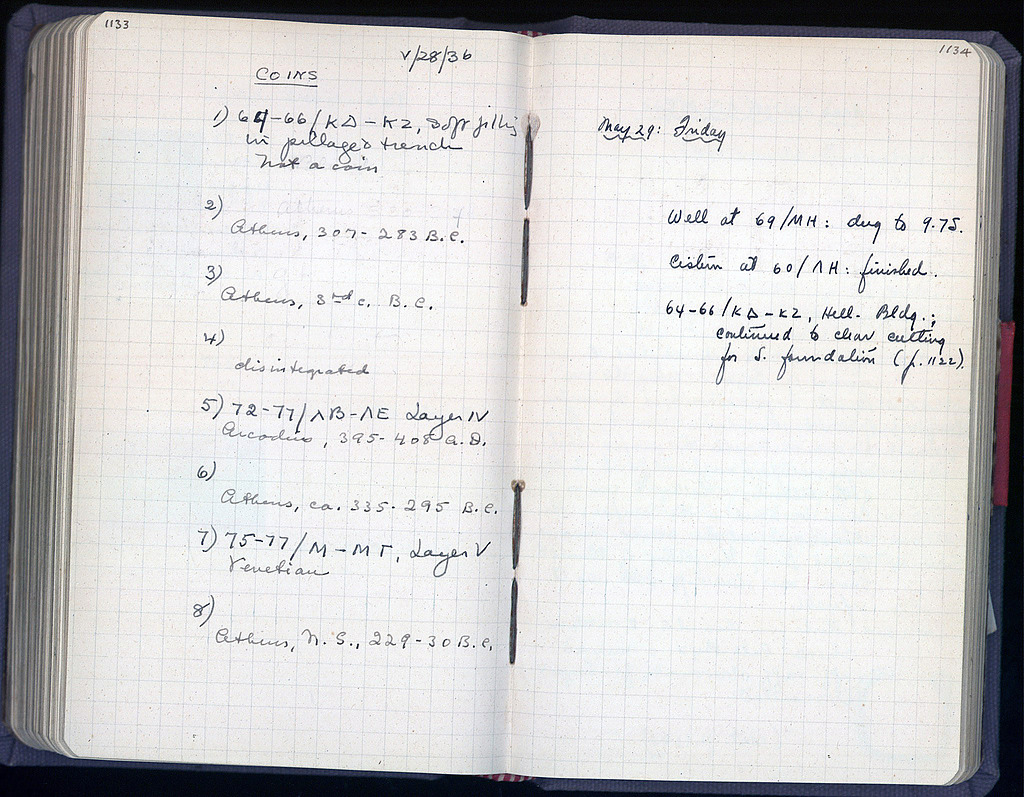 1133
V/28/36
COINS
1) 64-66/ΚΔ-ΚΖ, Soft filling
in pillaged trench
Not a coin
2)
Athens, 307-283 B.C.
3)
Athens, 3rd c. B.C.
4)
disintegrated
5) 72-77/ΛΒ-ΛΕ Layer IV
Arcadius, 395-408 A.D.
6)
Athens, ca. 335-295 B.C.
7) 75-77/Μ-ΜΓ, Layer V
Venetian
8)
Athens, N.S., 229-30 B.C.
1134
May 29: Friday
Well at 69/ΜΗ: dug to 9.75.
Cistern at 60/ΛΗ: finished.
64-66/ΚΔ-ΚΖ, Hell. Bldg.:
continued to clear cutting
for S. foundation (p. 1122).